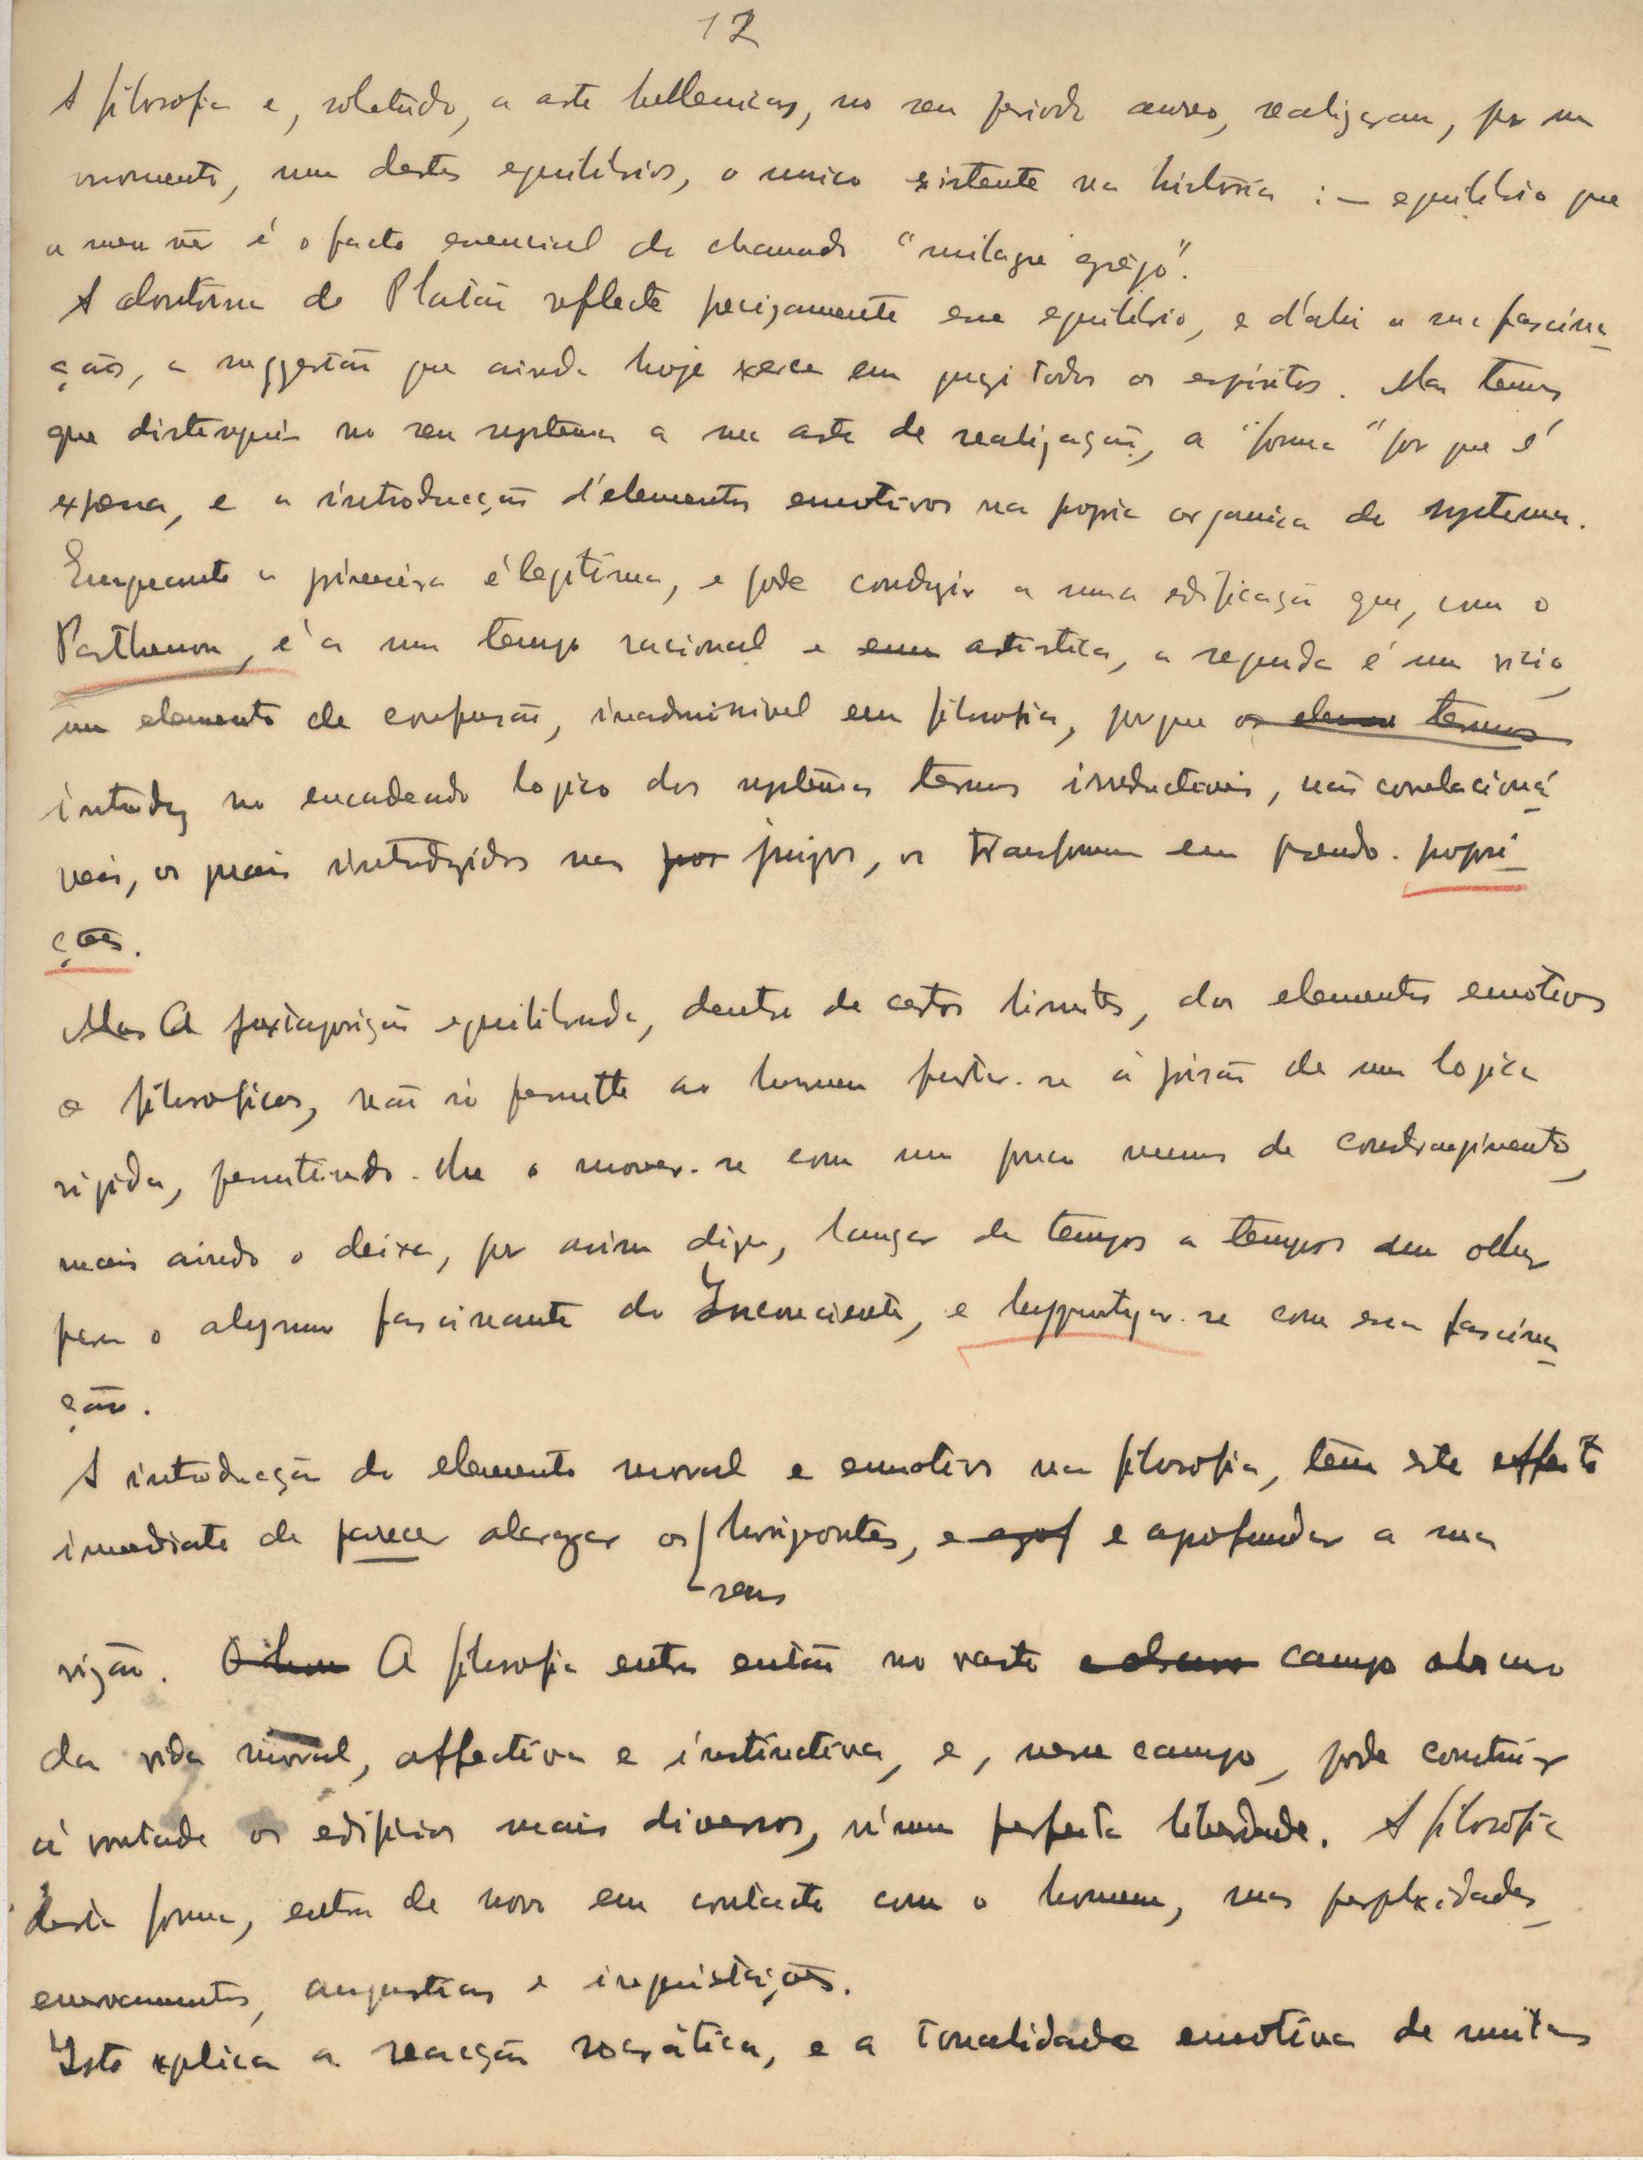 12
A filosofia e, sobretudo, a arte hellenicas, no seu periodo aureo, realizaram, por um
momento, um destes equilibrios, o unico existente na historia : — equilibrio que
a meu vêr é o facto essencial do chamado "milagre grego".
A doutrina de Platão reflecte precizamente esse equilibrio, e d'ahi a sua fascina-
ção, a suggestão que ainda hoje exerce em quazi todos os espiritos. Mas temos
que distinguir no seu systema a sua arte de realização, a "forma" por que é
expressa, e a introducção d'elementos emotivos na propria organica do systema.
Emquanto a primeira é legitima, e pode conduzir a uma edificação que, como o
Parthenon, é a um tempo racional e artistica, a segunda é um vicio,
um elemento de confusão, inadmissivel em filosofia, porque os termos
introduz no encadeado logico dos systemas termos irreductiveis, não correlacioná-
veis, os quais introduzidos nos juizos, os transformam em pseudo-propozi-
ções.
Mas A juxtaposição equilibrada, dentro de certos limites, dos elementos emotivos
e filosoficos, não só permitte ao homem furtar-se á prisão de uma logica
rigida, permitindo-lhe o mover-se com um pouco menos de constrangimento,
mais ainda o deixa, por assim dizer, lançar de tempos a tempos um olhar
para o abysmo fascinante do Inconsciente, e hypnotizar-se com essa fascina-
ção.
A introducção do elemento moral e emotivo na filosofia, têm este effeito
immediato de parecer alargar os horizontes, e aprofundar a sua
seus
vizão. A filosofia entra então no vasto campo obscuro
da vida moral, affectiva e instinctiva, e, nesse campo, pode construir
á vontade os edificios mais diversos, n'uma perfeita liberdade. A filosofia
desta forma, entra de novo em contacto com o homem, suas perplexidades,
enervamentos, angustias e inquietações.
Isto explica a reacção socrática, e a tonalidade emotiva de muitas